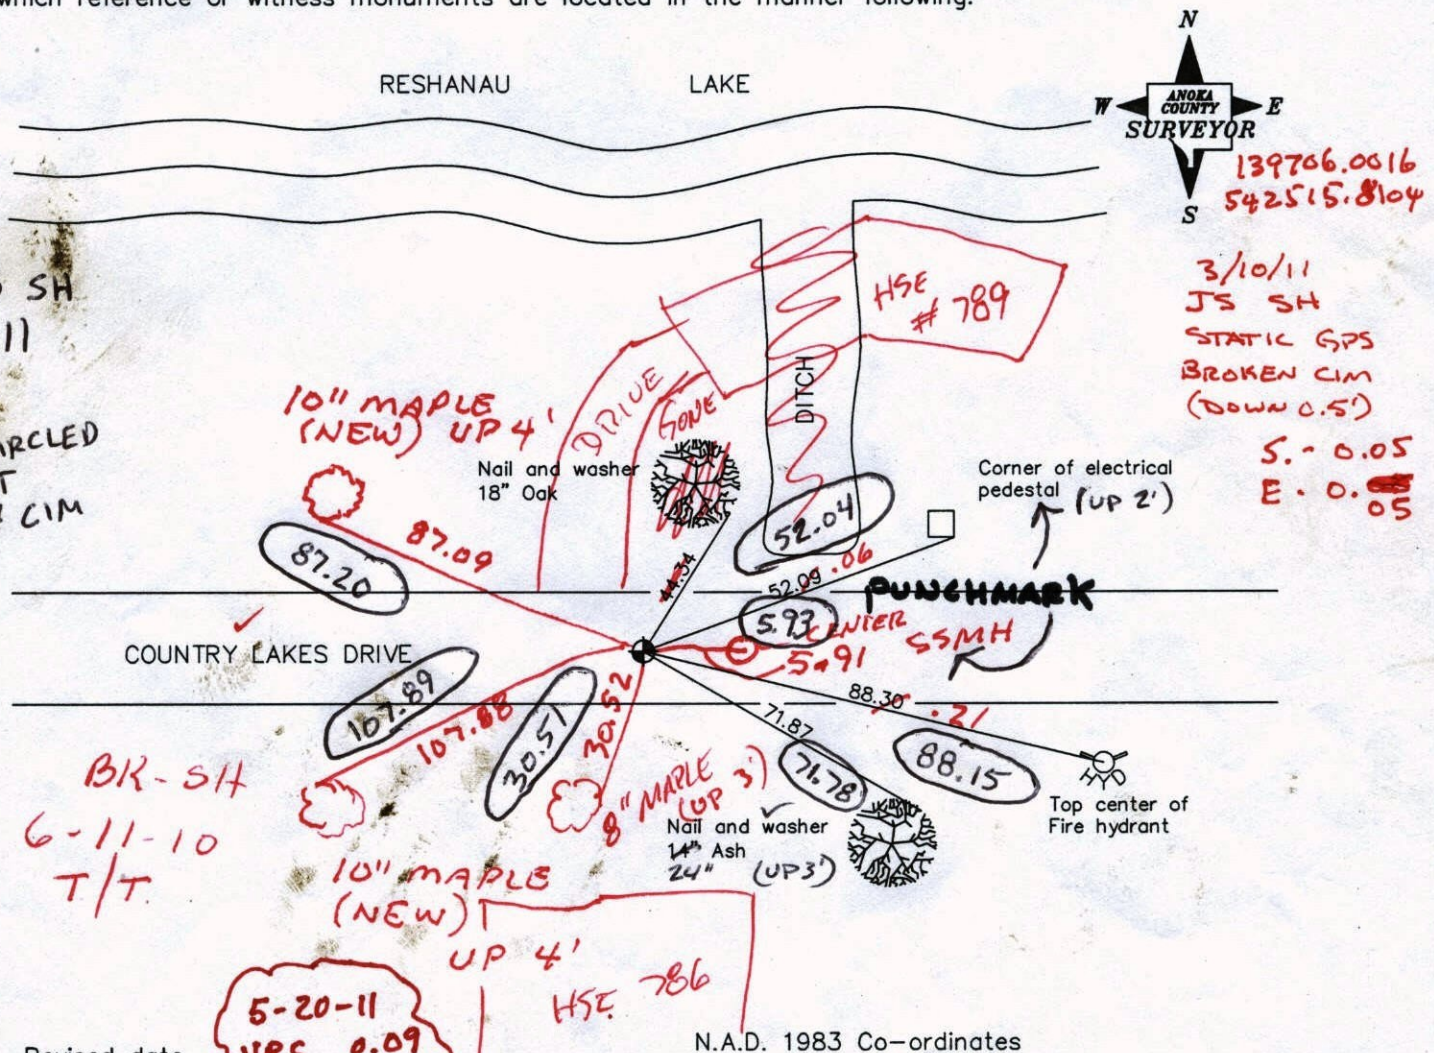 which reference or witness monuments are located in the manner following:
N
ANOKA
COUNTY
W E
SURVEYOR
S
RESHANAU LAKE
139706.0016
542515.8104
3/10/11
JS SH
STATIC GPS
BROKEN CIM
(DOWN 0.5')
S. - 0.05
E. 0.
05
SH
11
CIRCLED
CIM
HSE
# 789
DRIVE
GONE
DITCH
10" MAPLE
(NEW) UP 4'
Nail and washer
18" Oak
Corner of electrical
pedestal (UP 2')
87.20
87.09
44.34
52.04
52.09 .06
PUNCHMARK
5.93
CENTER
SSMH
5.91
COUNTRY LAKES DRIVE
107.89
107.88
30.51
30.52
88.30 .21
71.87
71.78
88.15
HYD
Top center of
Fire hydrant
8" MAPLE
(UP 3')
Nail and washer
14" Ash
24" (UP3')
BK-SH
6-11-10
T/T
10" MAPLE
(NEW)
UP 4'
HSE 786
5-20-11
VRS 0.09
Revised date
N.A.D. 1983 Co-ordinates